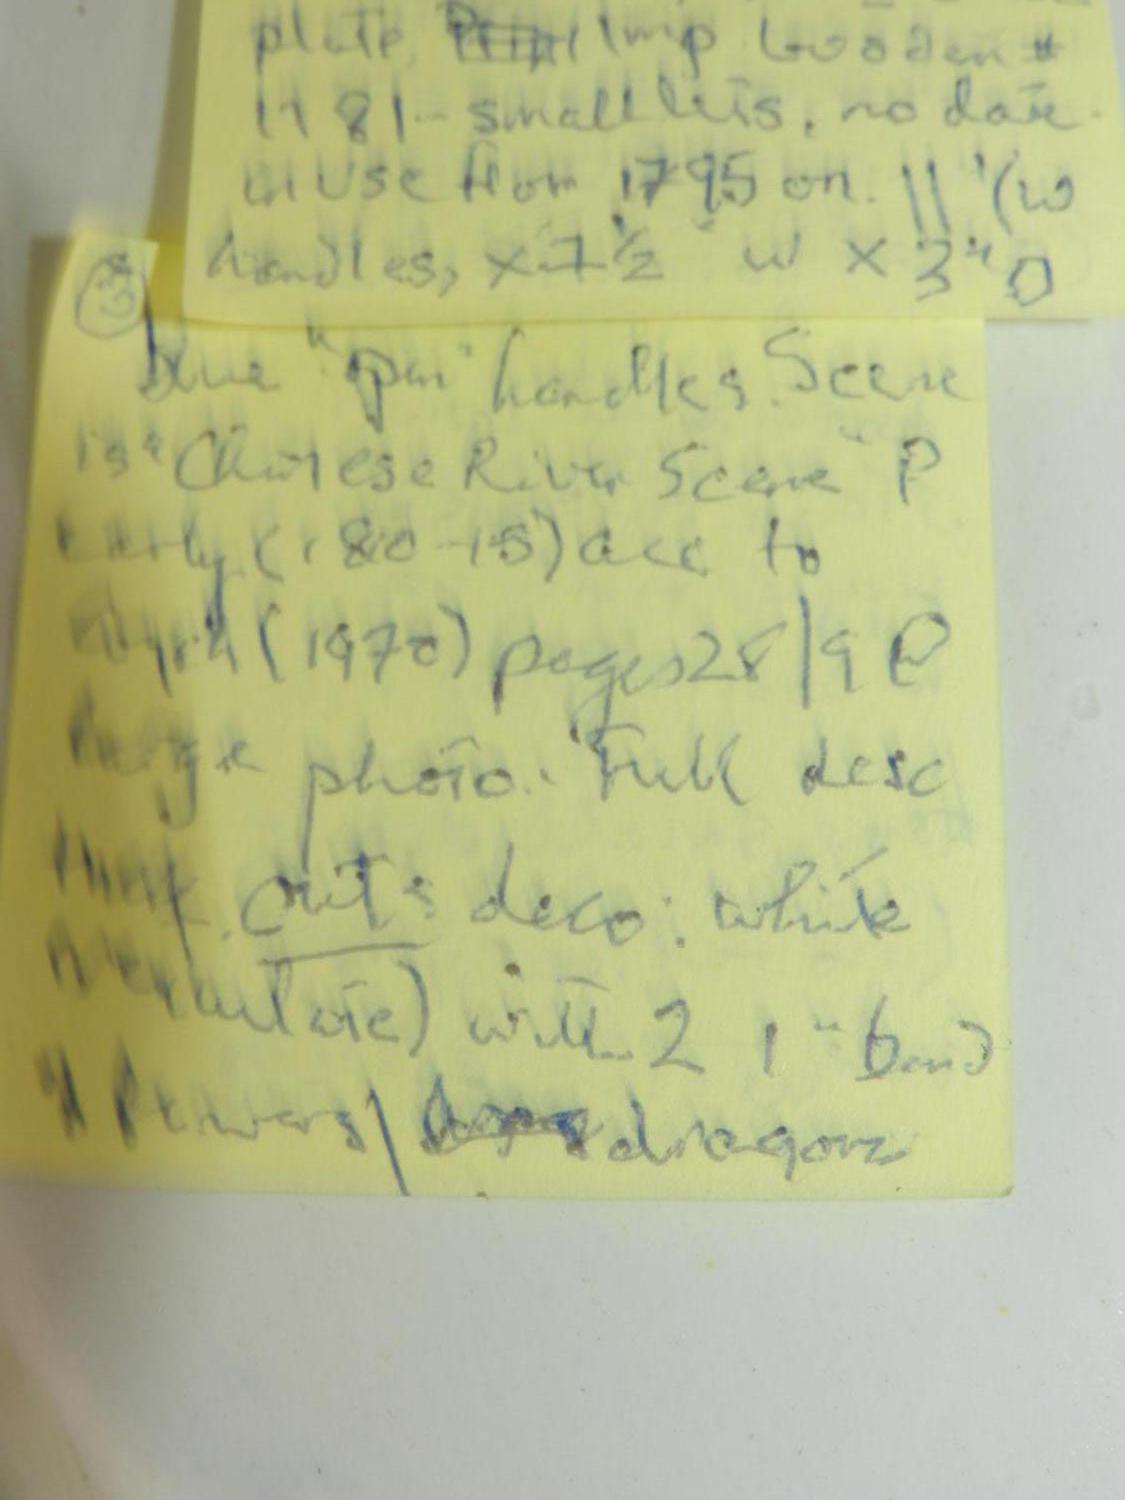 plate, Imp Wooden #
1181 - small lets, no date
in use from 1795 on. 11" (w
handles, x 7 1/2" w x 3" D
3
blue "ear" handles. Scene
is "Chinese River Scene" P
early (1810-15) acc to
(1970) pages 28/9 P
photo. Full desc
outs deco: white
with 2 1" band
flowers/ dragons